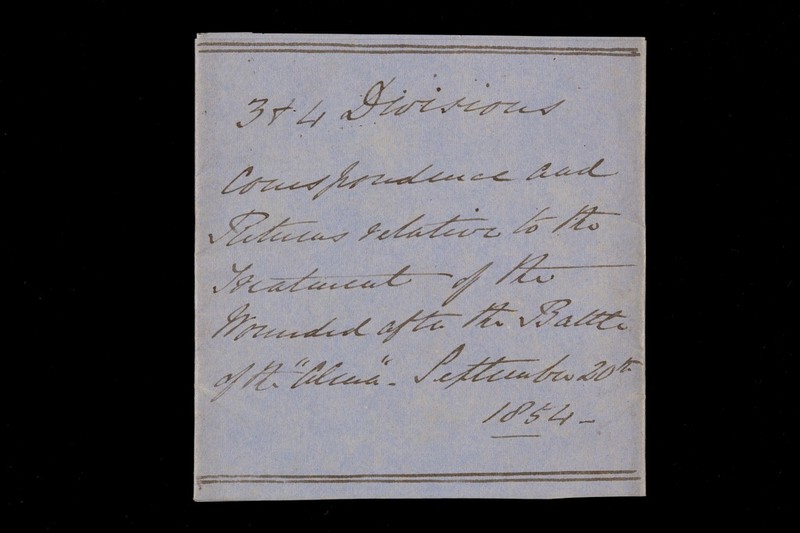 3 & 4 Divisions
Correspondence and
Returns relative to the
Treatment of the
Wounded after the Battle
of the "Alma" - September 20th
1854 -